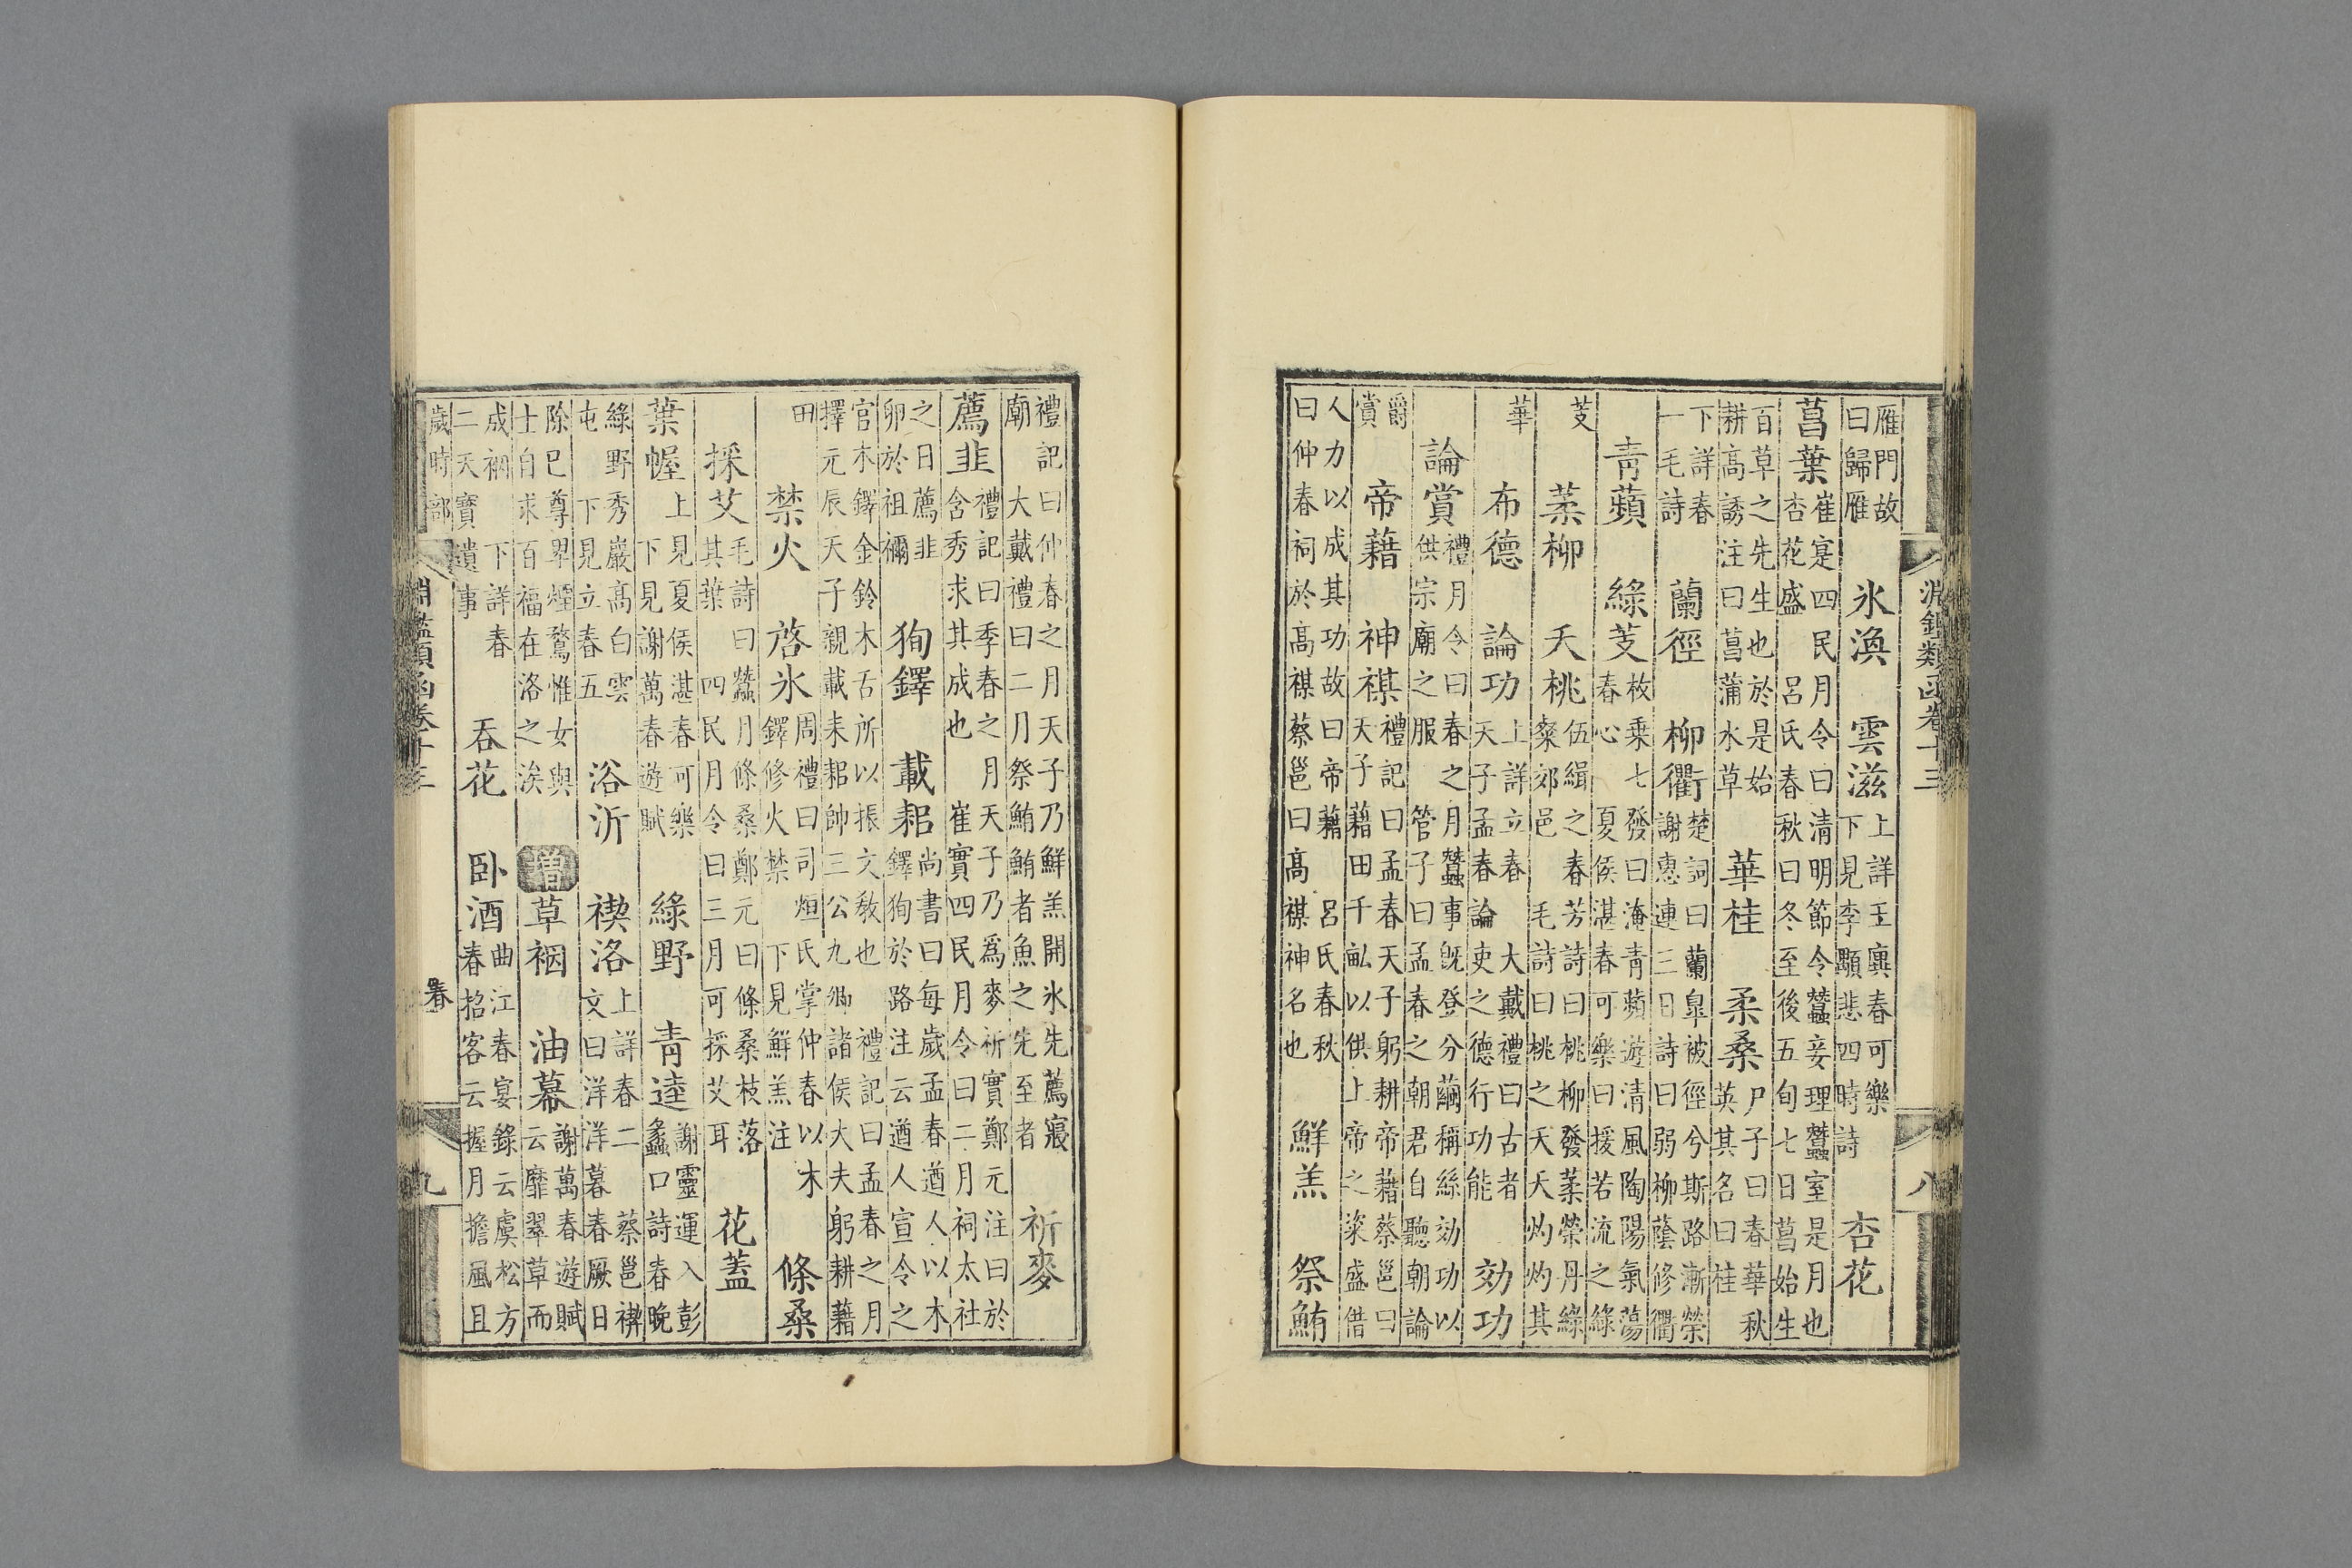 淵鑑類函卷十三 八
雁門故曰歸雁 氷渙 雲滋 上詳王廙春可樂下見李顒悲四時詩 杏花
菖葉 崔寔四民月令曰清明節令蠶妾理蠶室是月也杏花盛 呂氏春秋曰冬至後五旬七日菖始生
百草之先生也於是始耕高誘注曰菖蒲水草 華桂 柔桑 尸子曰春華秋英其名曰桂
下詳春一毛詩 蘭徑 柳衢 楚詞曰蘭皐被徑兮斯路漸榮謝惠連三日詩曰弱柳蔭修衢
青蘋 綠芰 枚乗七發曰淹青蘋遊清風陶陽氣蕩春心 夏侯湛春可樂曰援若流之綠
芰 葇柳 夭桃 伍緝之春芳詩曰桃柳發葇榮丹綠粲郊邑 毛詩曰桃之夭夭灼灼其
華 布德 論功 上詳立春 大戴禮曰古者天子孟春論吏之德行功能 効功
論賞 禮月令曰春之月蠶事旣登分繭稱絲効功以供宗廟之服 管子曰孟春之朝君自聽朝論
爵賞 帝藉 神禖 禮記曰孟春天子躬耕帝藉蔡邕曰天子藉田千畝以供上帝之粢盛借
人力以成其功故曰帝藉 呂氏春秋曰仲春祠於高禖蔡邕曰高禖神名也 鮮羔 祭鮪
禮記曰仲春之月天子乃鮮羔開氷先薦寢廟 大戴禮曰二月祭鮪鮪者魚之先至者 祈麥
薦韭 禮記曰季春之月天子乃爲麥祈實鄭元注曰於含秀求其成也 崔實四民月令曰二月祠太社
之日薦韭卵於祖禰 狥鐸 載耜 尚書曰每歲孟春遒人以木鐸狥於路注云遒人宣令之
官木鐸金鈴木舌所以振文敎也 禮記曰孟春之月擇元辰天子親載耒耜帥三公九卿諸侯大夫躬耕藉
田 禁火 啓氷 周禮曰司烜氏掌仲春以木鐸修火禁 下見鮮羔注 條桑
採艾 毛詩曰蠶月條桑鄭元曰條桑枝落其葉 四民月令曰三月可採艾耳 花蓋
葉幄 上見夏侯湛春可樂下見謝萬春遊賦 綠野 青逵 謝靈運入彭蠡口詩春晚
綠野秀巖高白雲屯 下見立春五 浴沂 禊洛 上詳春二 蔡邕禊文曰洋洋暮春厥日
除巳尊卑煙騖惟女與士自求百福在洛之涘 增 草裀 油幕 謝萬春遊賦云靡翠草而
成裀 下詳春二天寶遺事 吞花 卧酒 曲江春宴錄云虞松方春招客云握月擔風且
歲時部 淵鑑類函卷十三 春 九